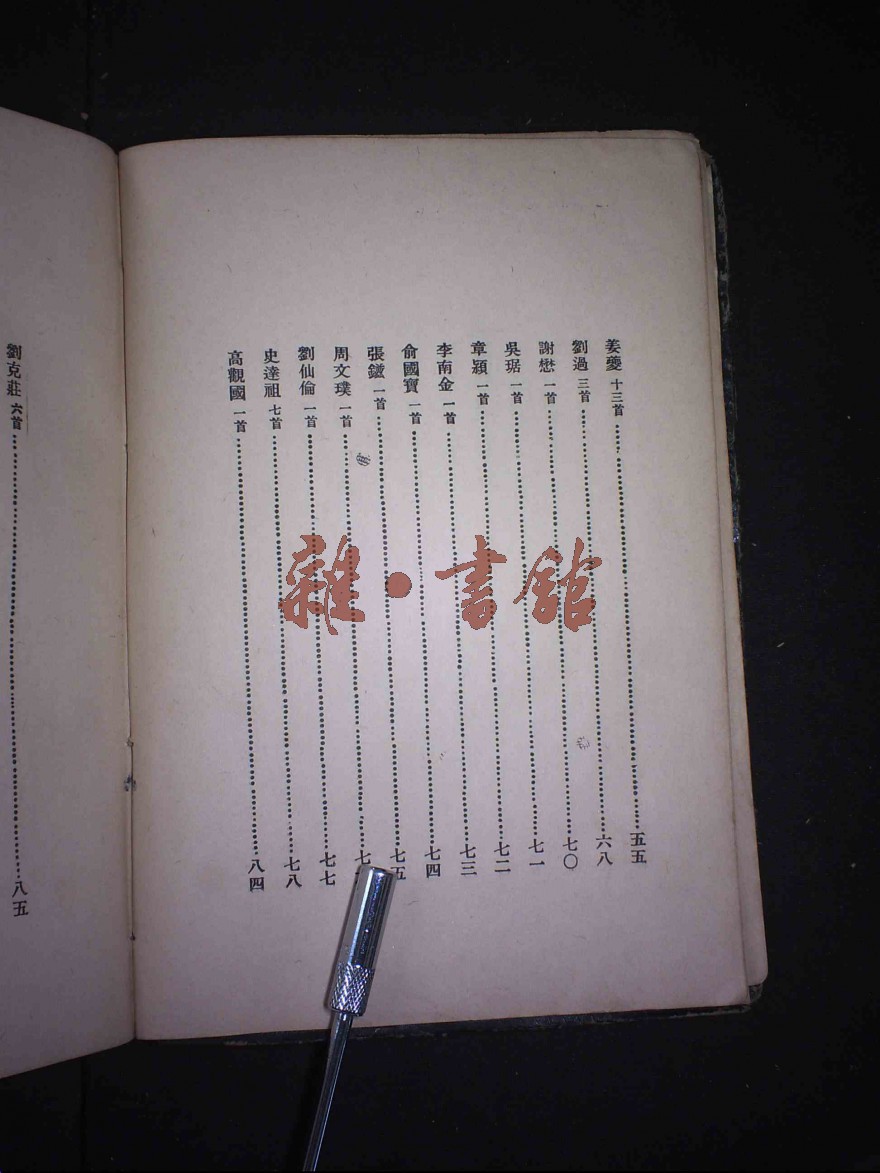 姜夔 十三首……五五
劉過 三首……六八
謝懋 一首……七〇
吳琚 一首……七一
章穎 一首……七二
李南金 一首……七三
俞國寶 一首……七四
張鎡 一首……七五
周文璞 一首……七
劉仙倫 一首……七七
史達祖 七首……七八
高觀國 一首……八四
劉克莊 六首……八五
雜·書館